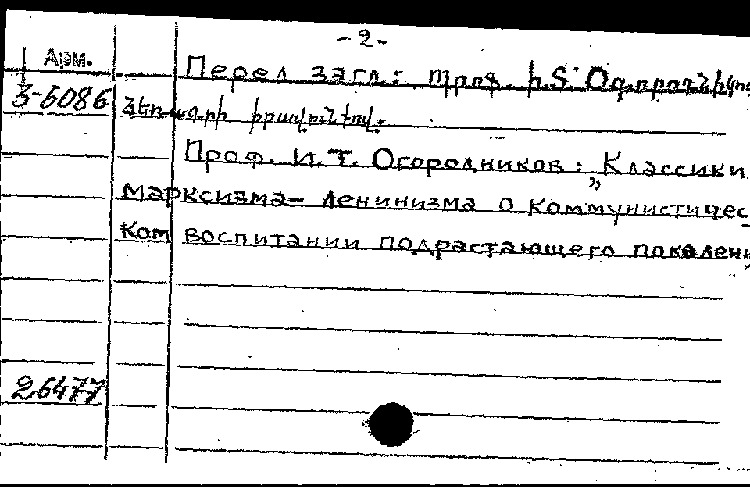 -2-
Арм.
Перед загл: պրոֆ. Ի. Տ. Օգորոդնիկով
3-5086
Հեռ իրավունքով:
Проф. И. Т. Огородников: „Классики
марксизма-ленинизма о коммунистичес-
ком воспитании подрастающего поколени
26477